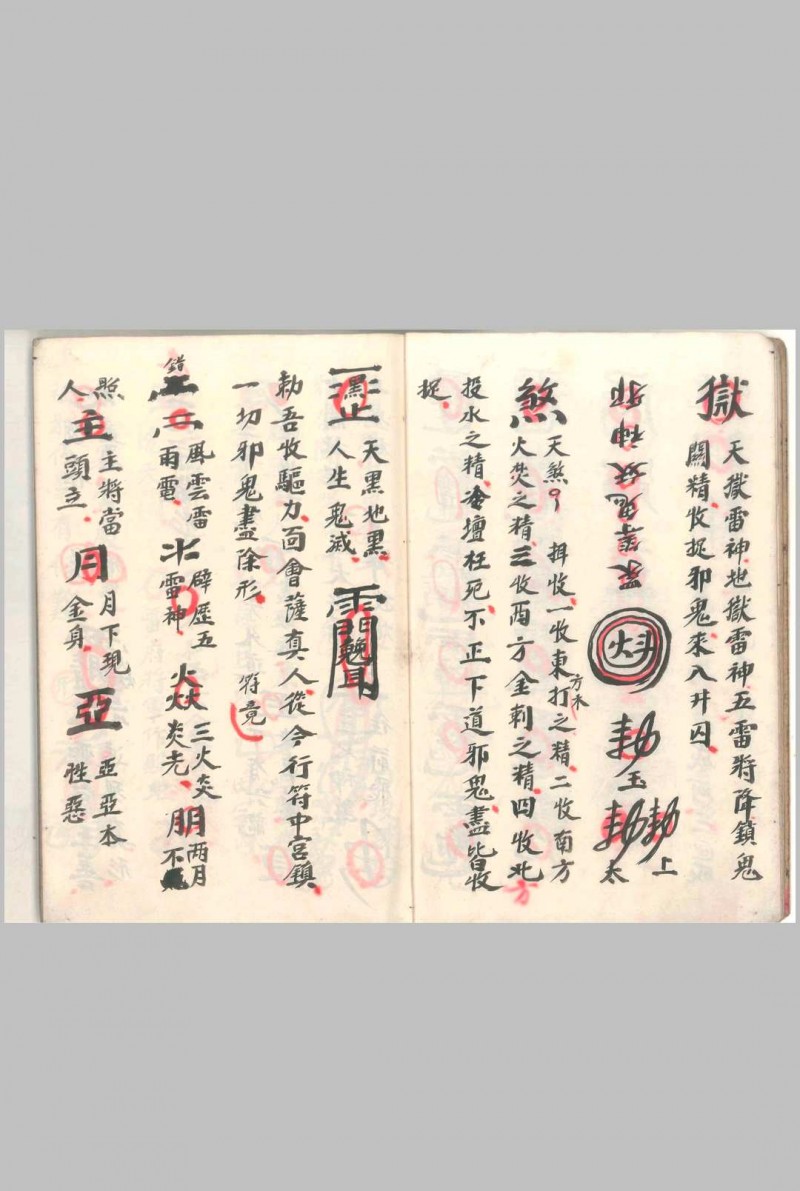 獄 天獄雷神地獄雷神五雷將降鎖鬼
關精收捉邪鬼來入井囚
邪神妖鬼等衆
勅 玉
勅 太
勅 上
煞 天煞 收一收東方木打之精二收南方
火焚之精三收西方金刺之精四收北方
投水之精冷壇枉死不正下道邪鬼盡皆收
捉
天黑地黑
人生鬼滅
勅吾收驅力面會薩真人從令行符中宮鎮
一切邪鬼盡除形 符竟
錯
風雲雷
雨電
霹歷五
雷神
焱 三火炎
炎光
朋 兩月
月不
照
人
主 主將當
頭立
月 月下現
金身
亞 亞亞本
性惡